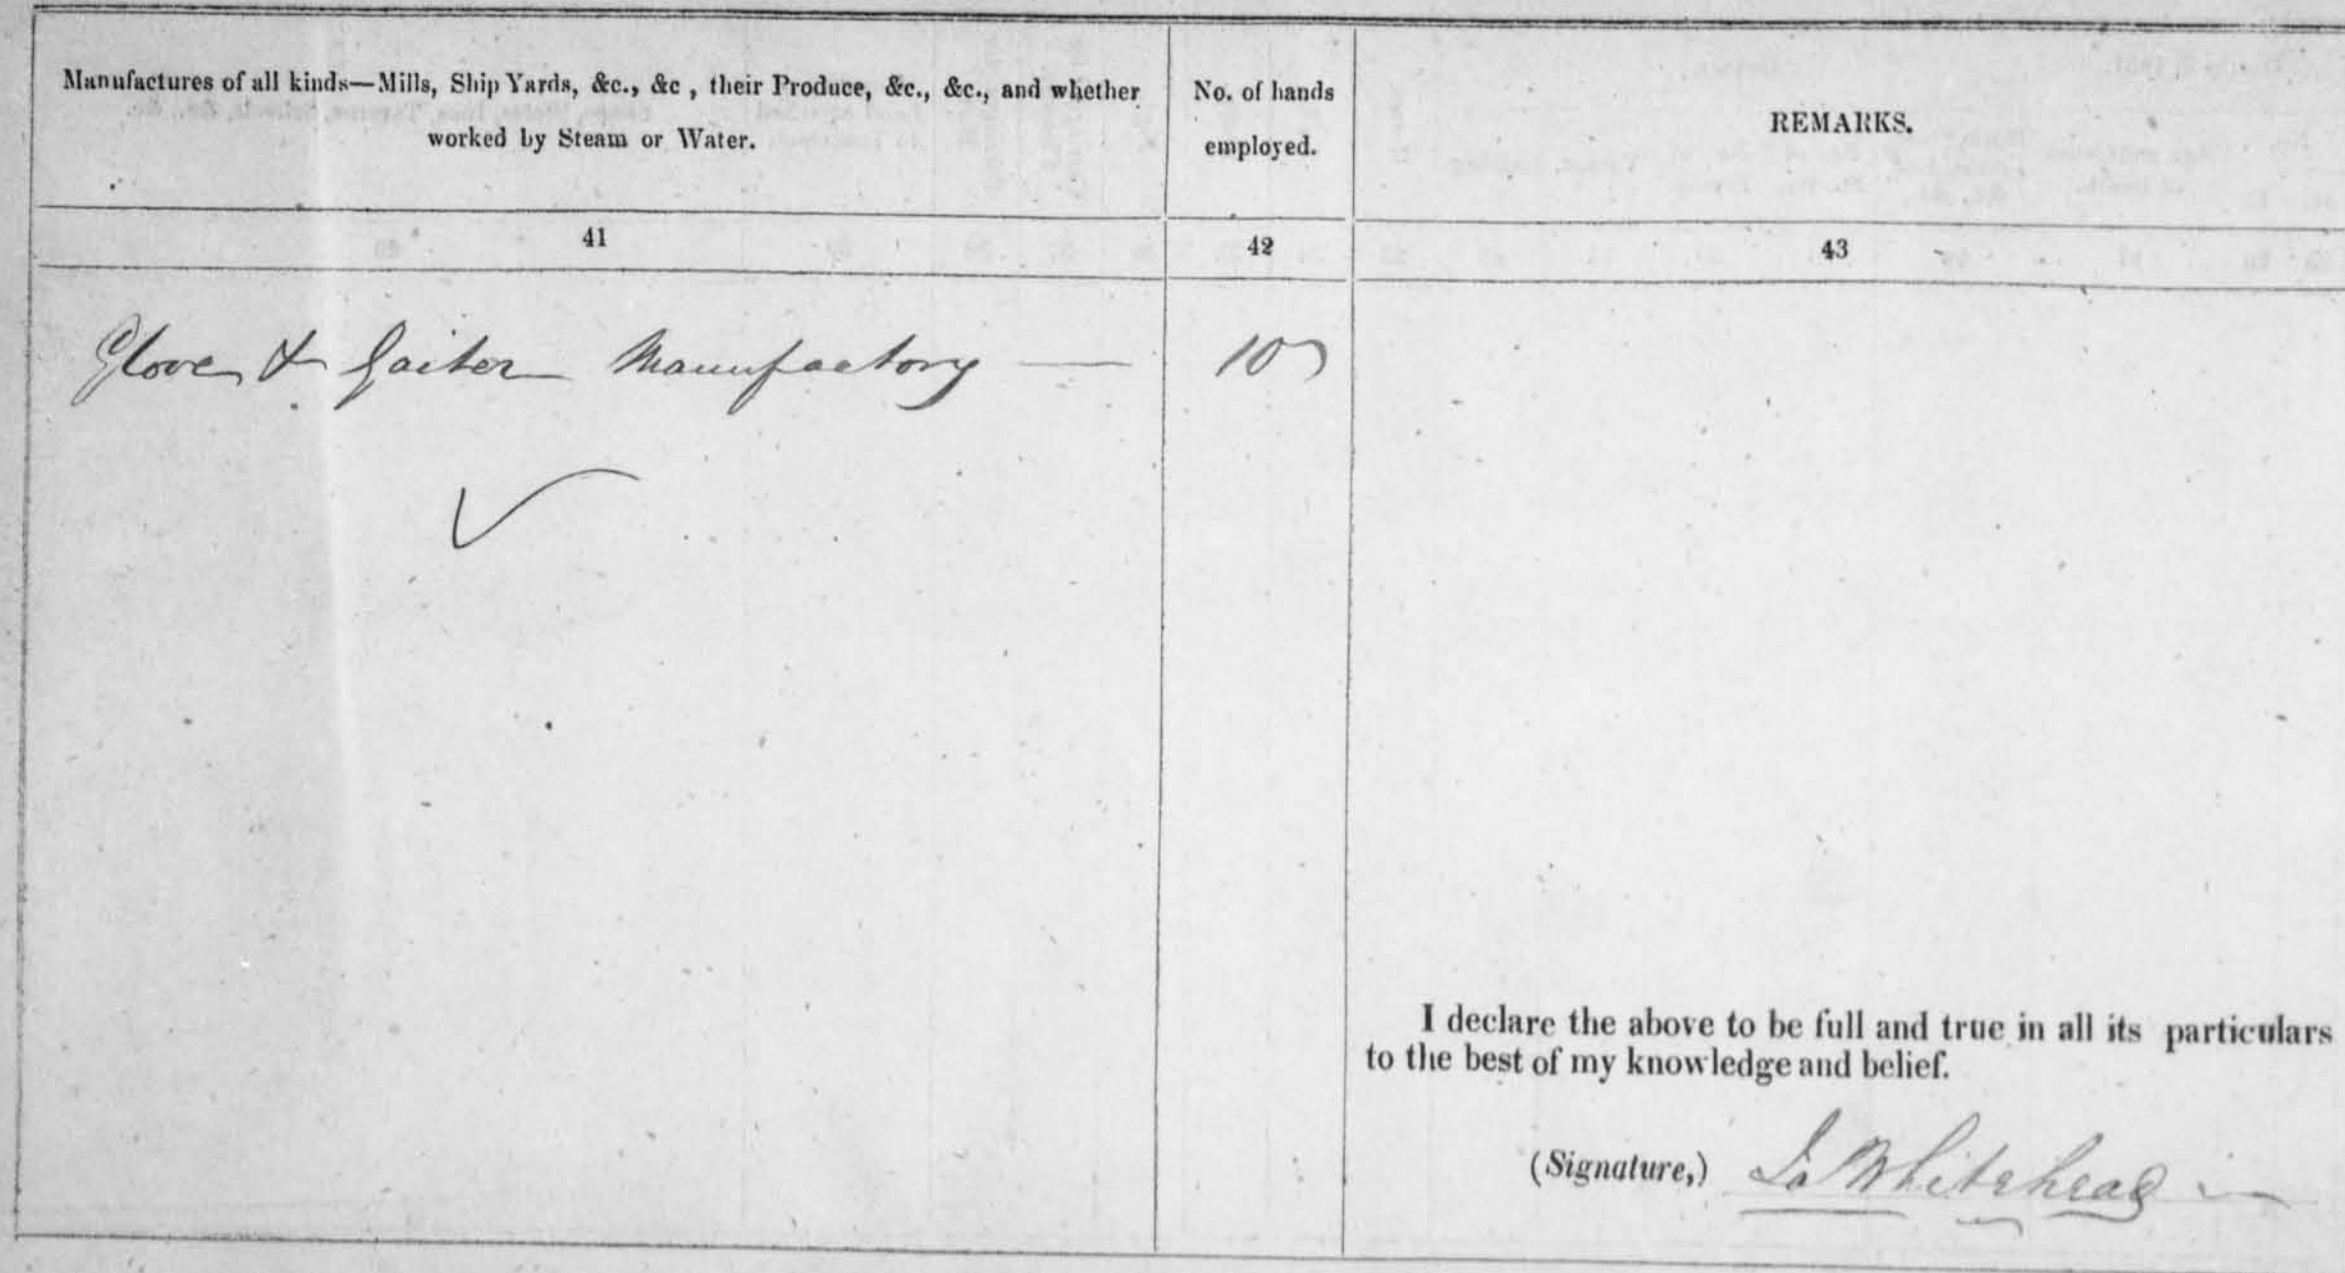 Manufactures of all kinds—Mills, Ship Yards, &c., &c , their Produce, &c., &c., and whether
worked by Steam or Water.
No. of hands
employed.
REMARKS.
41
42
43
Glove & Gaiter Manufactory —
10
I declare the above to be full and true in all its particulars
to the best of my knowledge and belief.
(Signature,) Whitehead